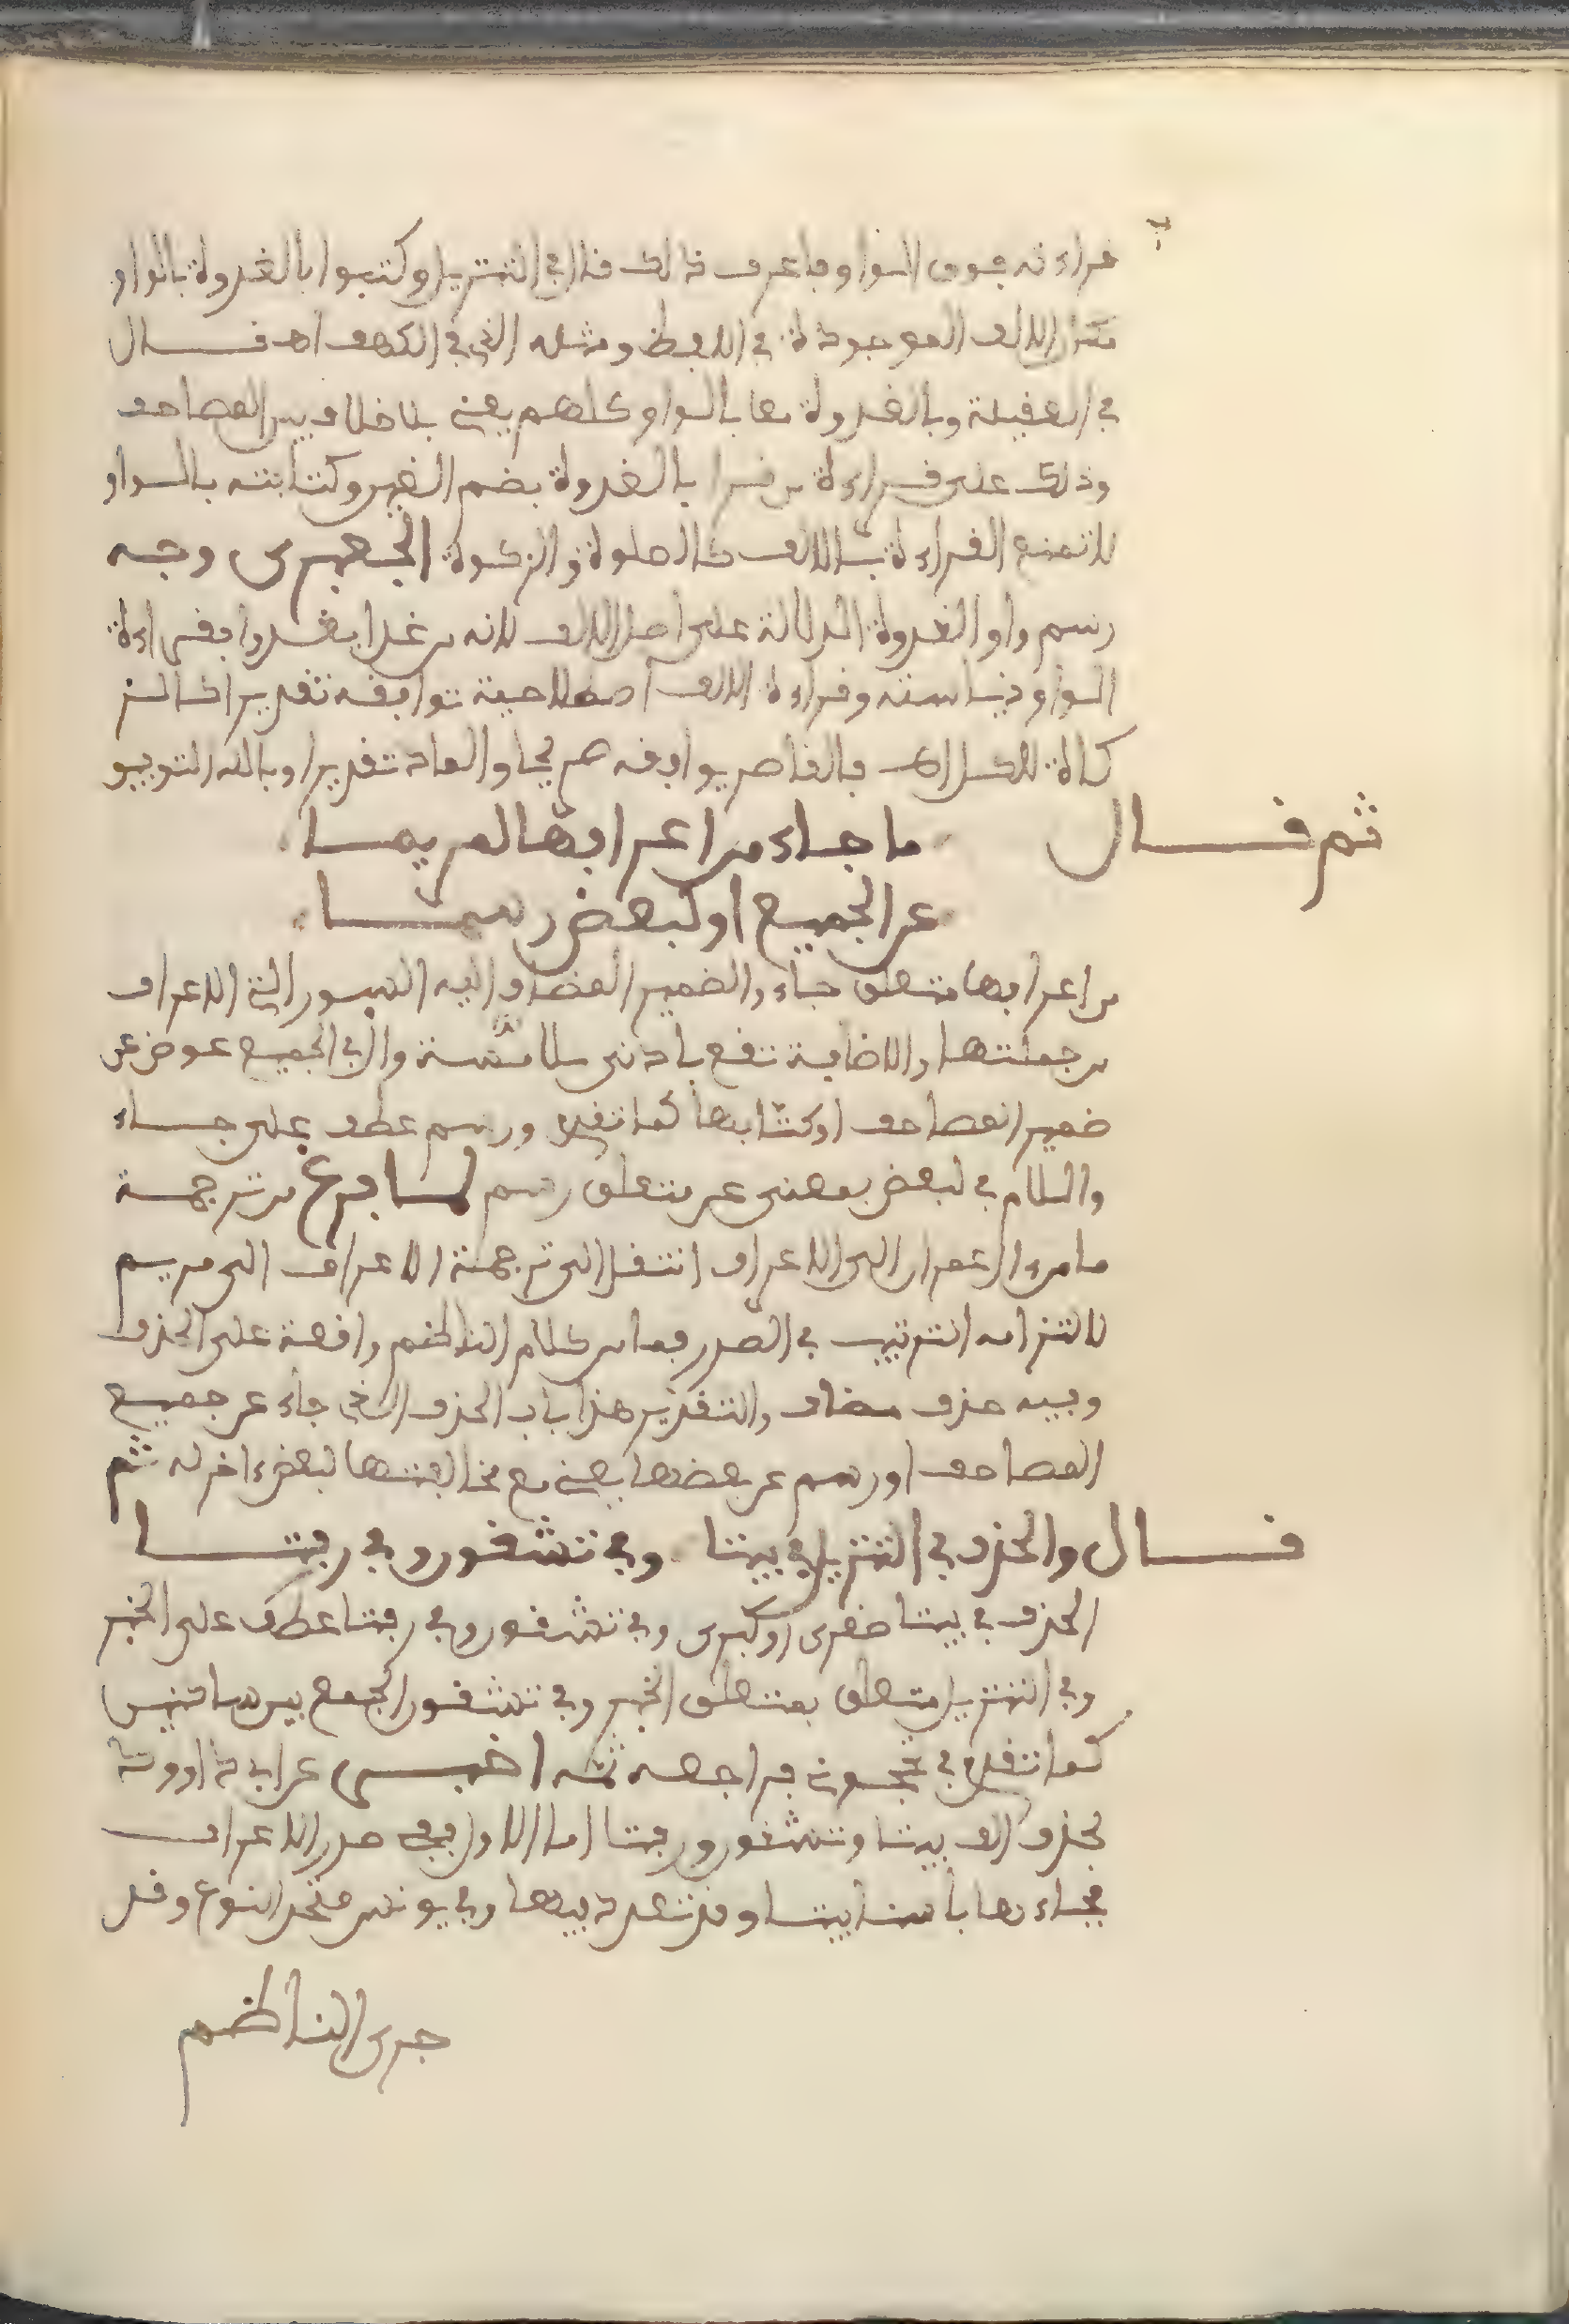 قراءته فوق الواو فاعرف ذلك قال في التنزيل وكتبوا بالغدوة بالواو
مكان الالف الموجودة في اللفظ ومثله الذي في الكهف اه قال
في العقيلة وبالغدوة معا بالواو كلهم يعني بلا خلاف بين المصاحف
وذلك على قراءة من قرا بالغدوة بضم الغين وكتابته بالواو
لا تمنع القراءة بالالف كالصلوة والزكوة الجعبري وجه
رسم واو الغدوة الدلالة على اصل الالف لانه من غدا يغدوا فقراءة
الواو قياسته وقراءة الالف اصطلاحية توافقه تقديرا
فالقاصر يوافقه صريحا والماد تقديرا وبالله التوفيق
ثم قال ما جاء من اعرافها لمريما
عن الجميع او لبعض رسما
من اعرافها متعلق جاء والضمير المضاف اليه السور التي الاعراف
من جملتها والاضافة تقع بادنى ملابسة وال في الجميع عوض عن
ضمير المصاحف او كتابها كما تقدم ورسم عطف على جاء
واللام في لبعض بمعنى عن متعلق رسم لما فرغ من ترجمة
ما من ال عمران الى الاعراف انتقل الى ترجمة الاعراف الى مريم
لالتزامه الترتيب في الصدر فما من كلام الناظم واقعة على الحذف
وفيه حذف مضاف والتقدير هذا باب الحذف الذي جاء عن جميع
المصاحف او رسم عن بعضها يعني مع مخالفتها لبعض ءاخر له ثم
قال والحذف في التنزيل في بيتا وفي تشقون وفي رفتا
الحذف في بيتا صغرى او كبرى وفي تشقون وفي رفتا عطف على الخبر
وفي التنزيل متعلق بمتعلق الخبر وفي تشقون الجمع بين ساكنين
كما تقدم في فراجعه ثمه اخبر عن ابي داوود
بحذف الف بيتا وتشقون ورفتا اما الاول ففي صدر الاعراف
فجاءها باسنا بيتا وقد تعدد فيها وفي يونس متحد النوع وقد
جرى الناظم